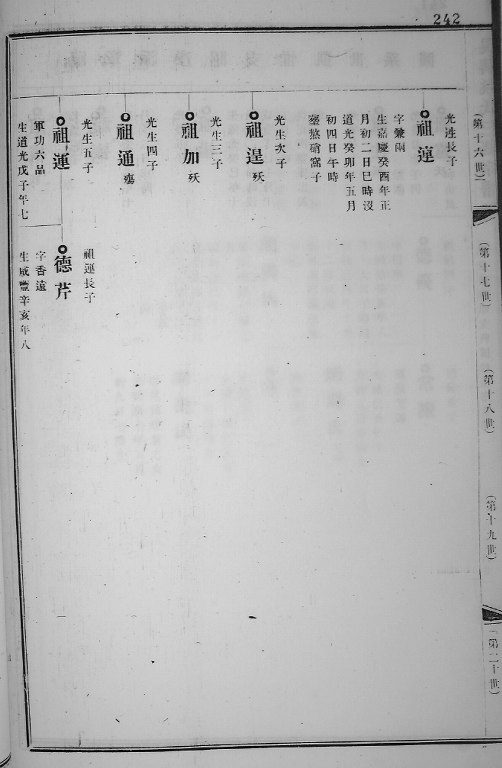 242
(第十六世)
(第十七世)
(第十八世)
(第十九世)
(第二十世)
光進長子
祖蓮
字兼雨
生嘉慶癸酉年正
月初二日巳時沒
道光癸卯年五月
初四日午時
塟煞硝窩子
光生次子
祖遑 殀
光生三子
祖加 殀
光生四子
祖通 殤
光生五子
祖運
軍功六品
生道光戊子年七
祖運長子
德芹
字香遠
生咸豐辛亥年八